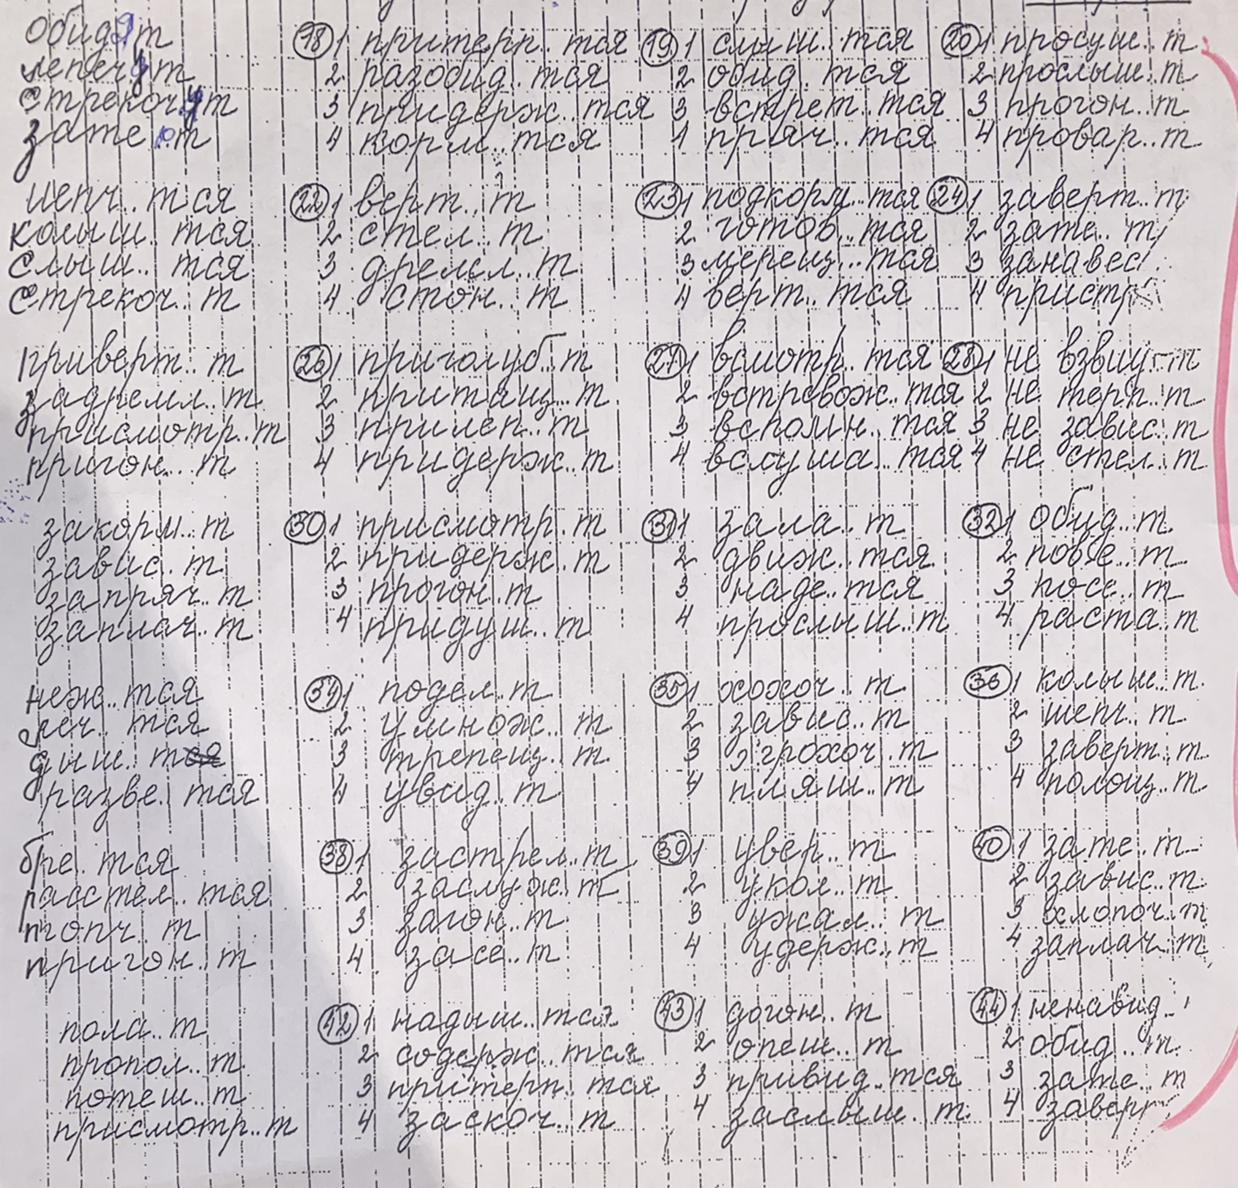 обидят (18) 1 притерп..тся (19) 1 слыш..тся (20) 1 просуш..т
лепечут 2 разобид..тся 2 обид..тся 2 прослыш..т
стрекочут 3 придерж..тся 3 встрет..тся 3 прогон..т
затеют 4 корм..тся 1 пряч..тся 4 провар..т
шепч..тся (22) 1 верт..т (23) 1 подкорм..тся (24) 1 заверт..т
колыш..тся 2 стел..т 2 готов..тся 2 зате..т
слыш..тся 3 дремл..т 3 мерещ..тся 3 занавес
стрекоч..т 4 стон..т 4 верт..тся 4 пристр
приверт..т (26) 1 приголуб..т (27) 1 всмотр..тся (28) 1 не взвиш..т
задремл..т 2 притащ..т 2 встревож..тся 2 не терп..т
присмотр..т 3 прилеп..т 3 вспомн..тся 3 не завис..т
пригон..т 4 придерж..т 4 вслуша..тся 4 не стел..т
закорм..т (30) 1 присмотр..т (31) 1 зала..т (32) 1 обид..т
завис..т 2 придерж..т 2 движ..тся 2 пове..т
запряч..т 3 прогон..т 3 наде..тся 3 посе..т
заплач..т 4 придуш..т 4 прослыш..т 4 раста..т
неж..тся (34) 1 подел..т (35) 1 хохоч..т (36) 1 колыш..т
леч..тся 2 умнож..т 2 завис..т 2 шепч..т
дыш..т 3 трепещ..т 3 грохоч..т 3 заверт..т
разве..тся 4 увид..т 4 пляш..т 4 полощ..т
бре..тся (38) 1 застрел..т (39) 1 увер..т (40) 1 зате..т
расстел..тся 2 заслуж..т 2 укол..т 2 завис..т
топч..т 3 загон..т 3 ужал..т 3 хлопоч..т
пригон..т 4 засе..т 4 удерж..т 4 заплач..т
пола..т (42) 1 надыш..тся (43) 1 догон..т (44) 1 ненавид..
пропол..т 2 содерж..тся 2 опеш..т 2 обид..т
потеш..т 3 притерп..тся 3 привид..тся 3 зате..т
присмотр..т 4 заскоч..т 4 заслыш..т 4 завер